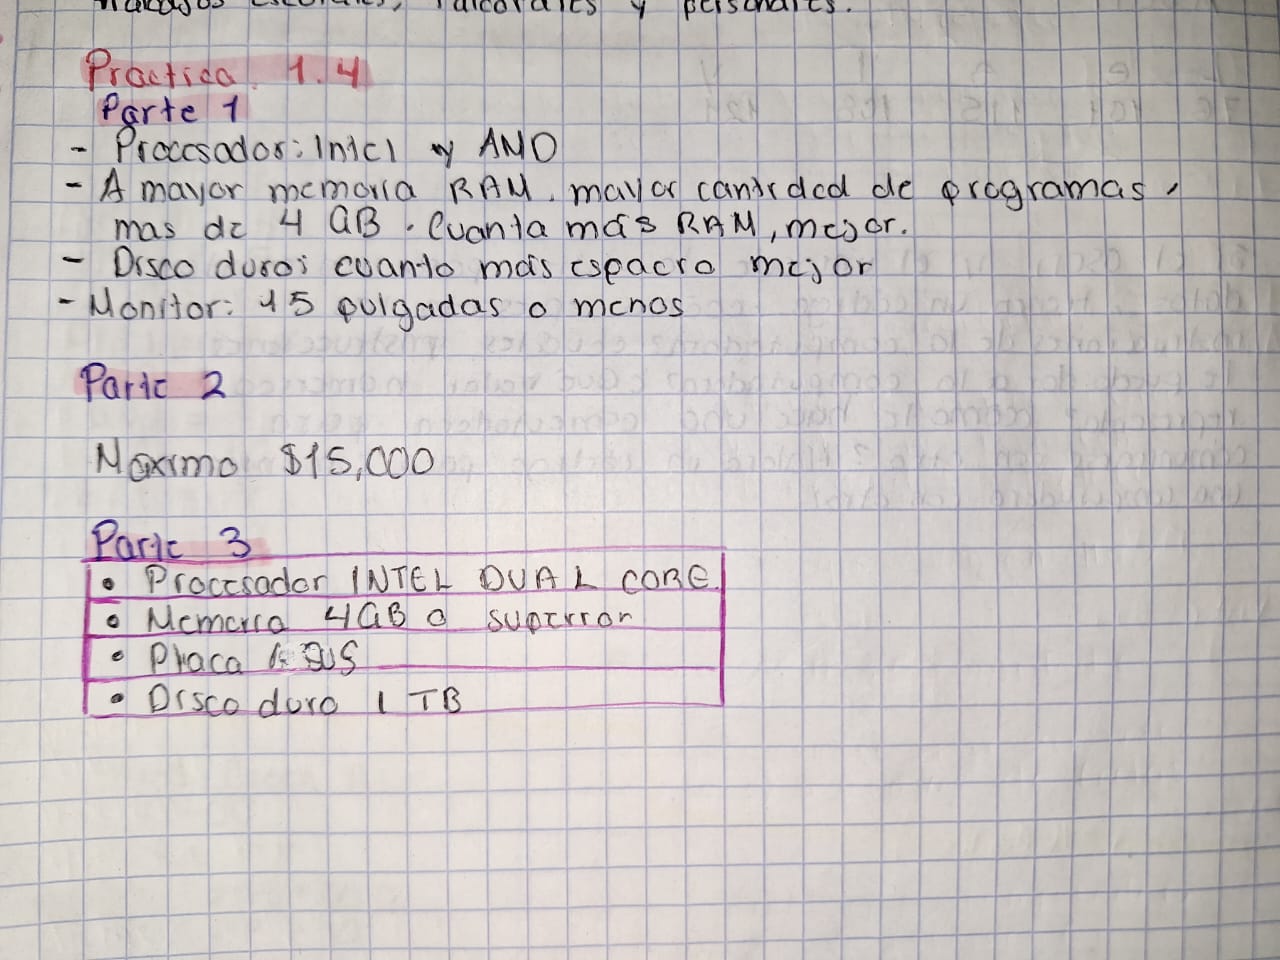 y personales.
Practica 1.4
Parte 1
- Procesador: Intel y AMD
- A mayor memoria RAM, mayor cantidad de programas,
mas de 4 GB. Cuanta más RAM, mejor.
- Disco duro: cuanto más espacio mejor
- Monitor: 15 pulgadas o menos
Parte 2
Maximo $15,000
Parte 3
• Procesador INTEL DUAL CORE
• Memoria 4GB o superior
• Placa ASUS
• Disco duro 1 TB